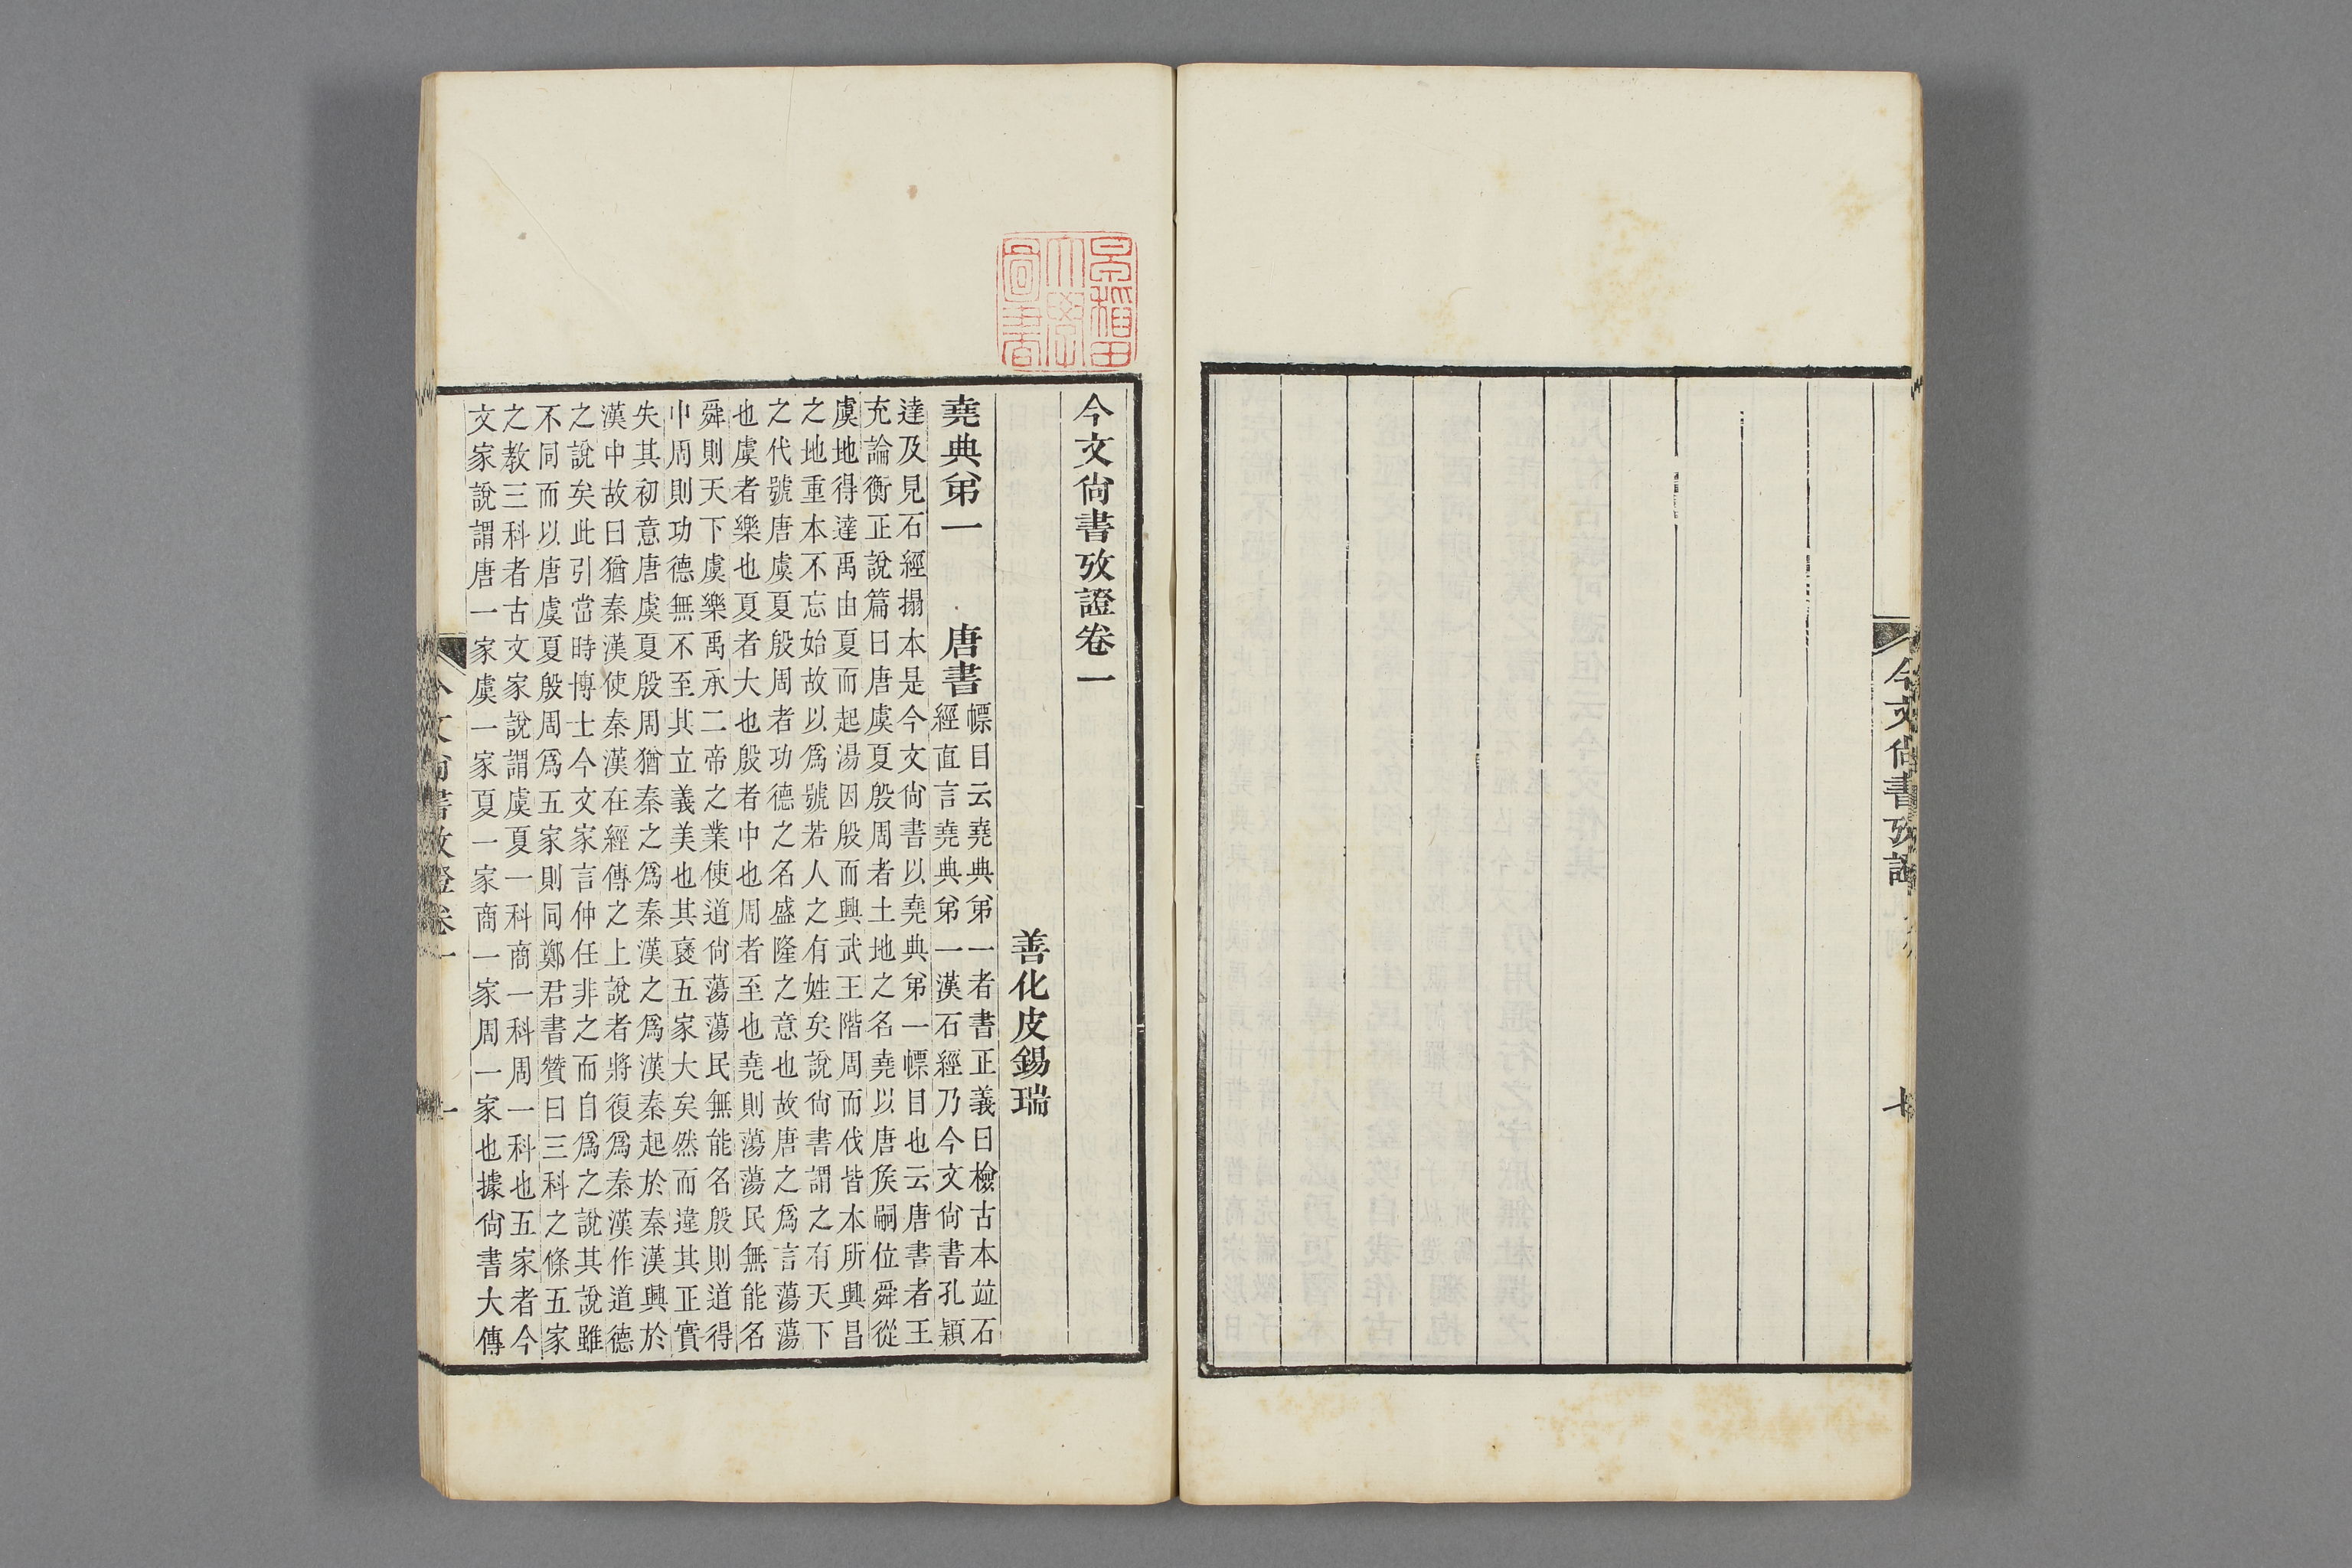 今文尚書攷證
七
早稻田
大學
圖書
今文尚書攷證卷一
善化皮錫瑞
堯典弟一　唐書
幖目云堯典弟一者書正義曰檢古本竝石
經直言堯典弟一漢石經乃今文尚書孔穎
達及見石經搨本是今文尚書以堯典弟一幖目也云唐書者王
充論衡正說篇曰唐虞夏殷周者土地之名堯以唐矦嗣位舜從
虞地得達禹由夏而起湯因殷而興武王階周而伐皆本所興昌
之地重本不忘始故以爲號若人之有姓矣說尚書謂之有天下
之代號唐虞夏殷周者功德之名盛隆之意也故唐之爲言蕩蕩
也虞者樂也夏者大也殷者中也周者至也堯則蕩蕩民無能名
舜則天下虞樂禹承二帝之業使道尚蕩蕩民無能名殷則道得
中周則功德無不至其立義美也其襃五家大矣然而違其正實
失其初意唐虞夏殷周猶秦之爲秦漢之爲漢秦起於秦漢興於
漢中故曰猶秦漢使秦漢在經傳之上說者將復爲秦漢作道德
之說矣此引當時博士今文家言仲任非之而自爲之說其說雖
不同而以唐虞夏殷周爲五家則同鄭君書贊曰三科之條五家
之教三科者古文家說謂虞夏一科商一科周一科也五家者今
文家說謂唐一家虞一家夏一家商一家周一家也據尚書大傳
今文尚書攷證卷一
一